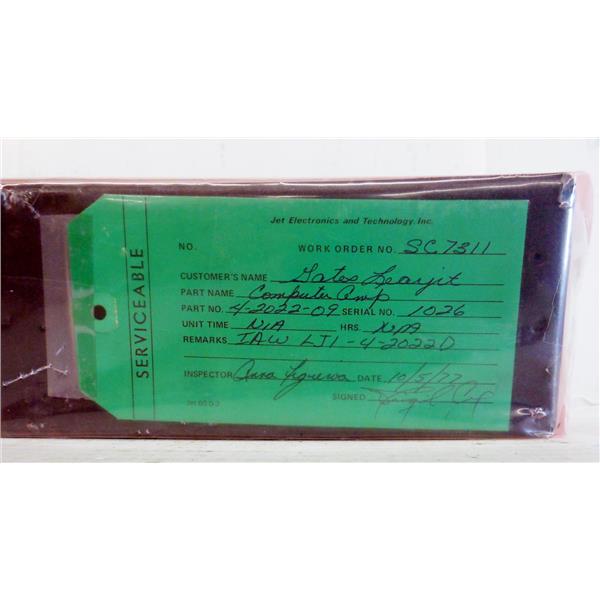 SERVICEABLE
Jet Electronics and Technology, Inc.
NO. WORK ORDER NO. SC7311
CUSTOMER'S NAME Gates Learjet
PART NAME Computer Amp
PART NO. 4-2022-09 SERIAL NO. 1026
UNIT TIME N/A HRS. N/A
REMARKS IAW LJ1-4-2022D
INSPECTOR Anna Figueroa DATE 10/5/77
SIGNED
Jet 60 D-2